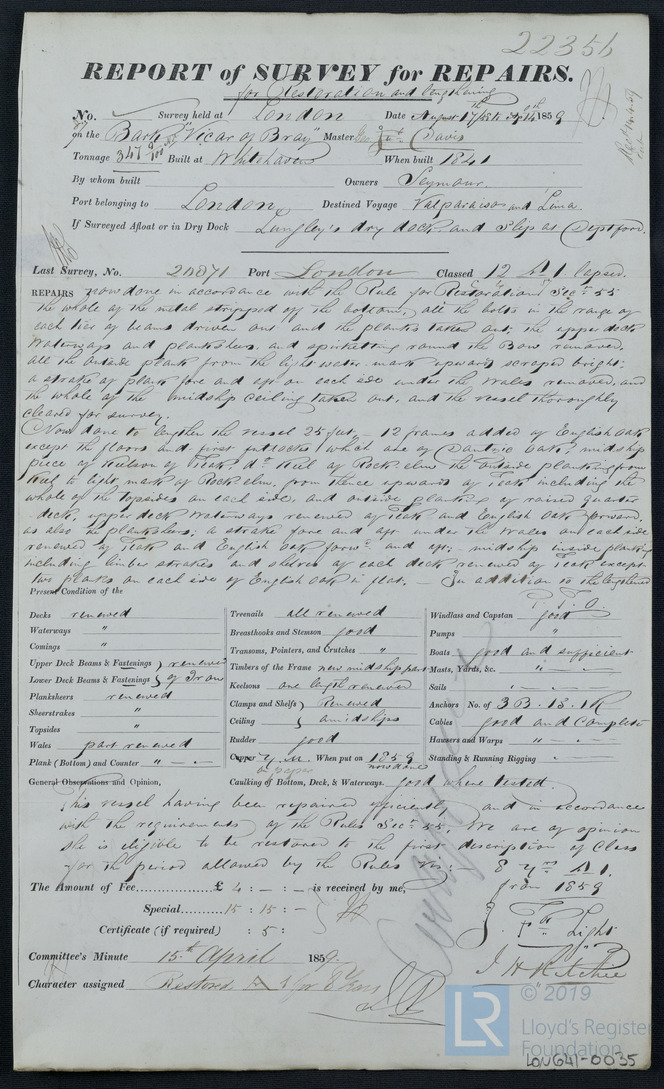 22356
REPORT of SURVEY for REPAIRS.
for Restoration and lengthening
No. Survey held at London Date August 17th 1859
on the Bark "Vicar of Bray" Master Davis
Tonnage 347 Built at Whitehaven When built 1841
By whom built Owners Seymour.
Port belonging to London Destined Voyage Valparaiso and Lima.
If Surveyed Afloat or in Dry Dock Langley's dry dock and Slip at Deptford.
Last Survey, No. 20871 Port London Classed 12 A1 lapsed.
REPAIRS now done in accordance with the Rule for Restoration Sec. 55
the whole of the metal stripped off the bottom, all the bolts in the range of
each tier of beams driven out and the planks taken out; the upper deck
Waterways and plankshers, and spirketting round the Bow removed,
all the outside plank from the light water mark upwards scraped bright;
a strake of plank fore and aft on each side under the Wales removed, and
the whole of the midship ceiling taken out, and the vessel thoroughly
cleared for survey.
Now done to lengthen the vessel 25 feet, in 12 frames added of English Oak
except the floors and first futtocks which are of Dantzic Oak; midship
piece of Keelson of Teak, do. Keel of Rock elm the outside planking from
Keel to light mark of Rock elm, from thence upwards of Teak including the
whole of the topsides on each side, and outside planking of raised Quarter
deck, upper deck Waterways renewed of Teak and English Oak forward.
as also the plankshers; a strake fore and aft under the Wales on each side
renewed of Teak and English Oak forwd. and aft; midship inside planking
including limber strakes and shelves of each deck renewed of Teak except
two planks on each side of English Oak in flat. — In addition to the lengthened
P.T.O.
Present Condition of the
Decks renewed
Waterways "
Comings "
Upper Deck Beams & Fastenings } renewed
Lower Deck Beams & Fastenings } of Iron
Planksheers renewed
Sheerstrakes "
Topsides "
Wales part renewed
Plank (Bottom) and Counter " — . —
Treenails all renewed
Breasthooks and Stemson good
Transoms, Pointers, and Crutches "
Timbers of the Frame new midship part
Keelsons one length renewed
Clamps and Shelfs } Renewed
Ceiling } amidships
Rudder good
Copper Y.M. When put on 1859
on paper now done
Windlass and Capstan good
Pumps "
Boats good and sufficient
Masts, Yards, &c. " — . —
Sails " — . —
Anchors No. of 3 B. 1 S. 1 K
Cables good and Complete
Hawsers and Warps " — . —
Standing & Running Rigging " — . —
General Observations and Opinion,
Caulking of Bottom, Deck, & Waterways. good where tested.
This vessel having been repaired efficiently and in accordance
with the requirements of the Rules Sec. 55, We are of opinion
she is eligible to be restored to the first description of Class
for the period allowed by the Rules viz: — 8 yrs A1.
from 1859
The Amount of Fee............£ 4 : — : — is received by me,
Special......15 : 15 : —
Certificate (if required) : 5 :
Light
J H Ritchie
Committee's Minute 15th April 1859.
Character assigned Restored A1 for 8 Yrs
© 2019
LR
Lloyd's Register
Foundation
LON641-0035